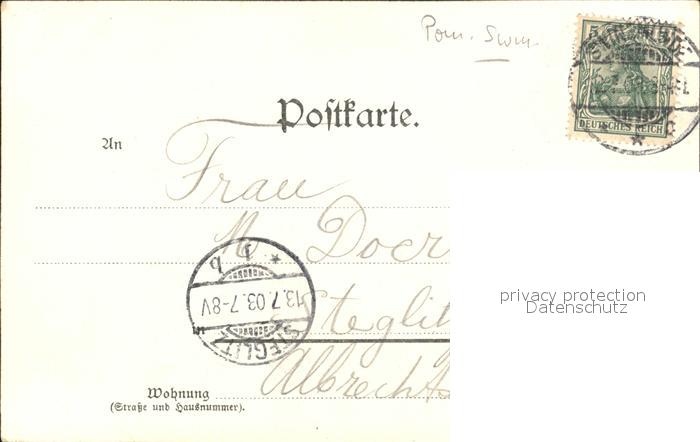 Pom. Swm.
5
DEUTSCHES REICH
Postkarte.
An
Frau
M Doer
13.7.03.7-8V
STEGLITZ
Steglit
Albrecht
privacy protection
Datenschutz
Wohnung
(Straße und Hausnummer).